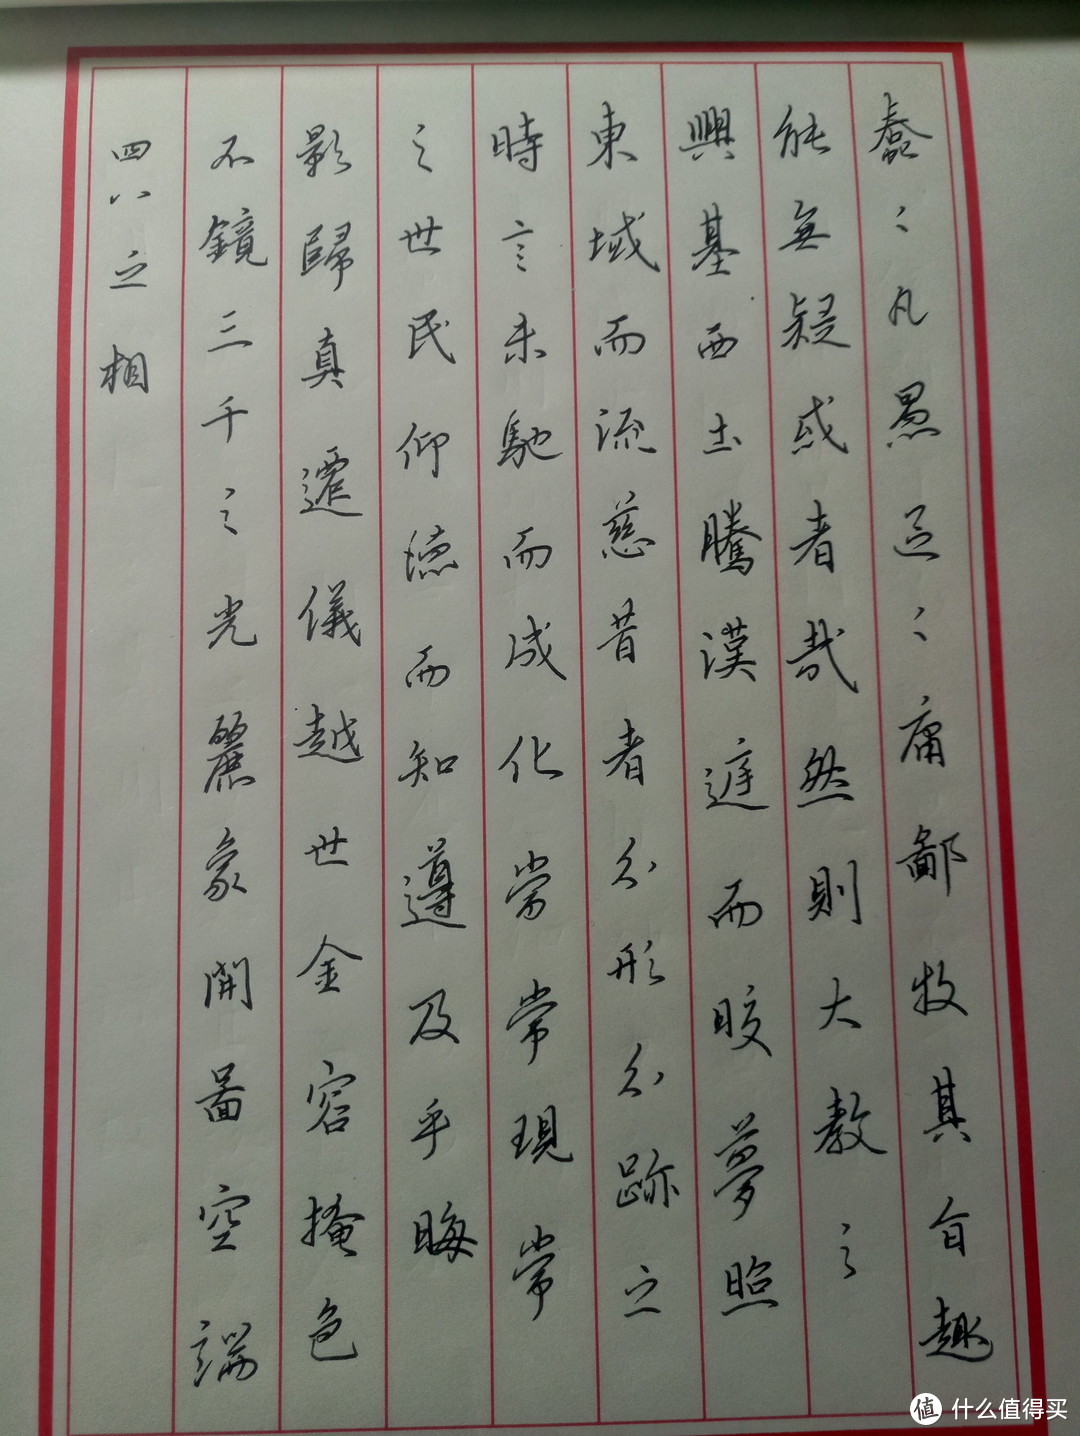 蠢〻凡愚區〻庸鄙投其旨趣
能無疑或者哉然則大教之
興基西土騰漢遅而皎夢照
東域而流慈昔者分形分跡之
時言未馳而成化當常現常
之世民仰德而知遵及乎晦
影歸真遷儀越世金容掩色
不鏡三千之光麗象開圖空端
四八之相
值 什么值得买